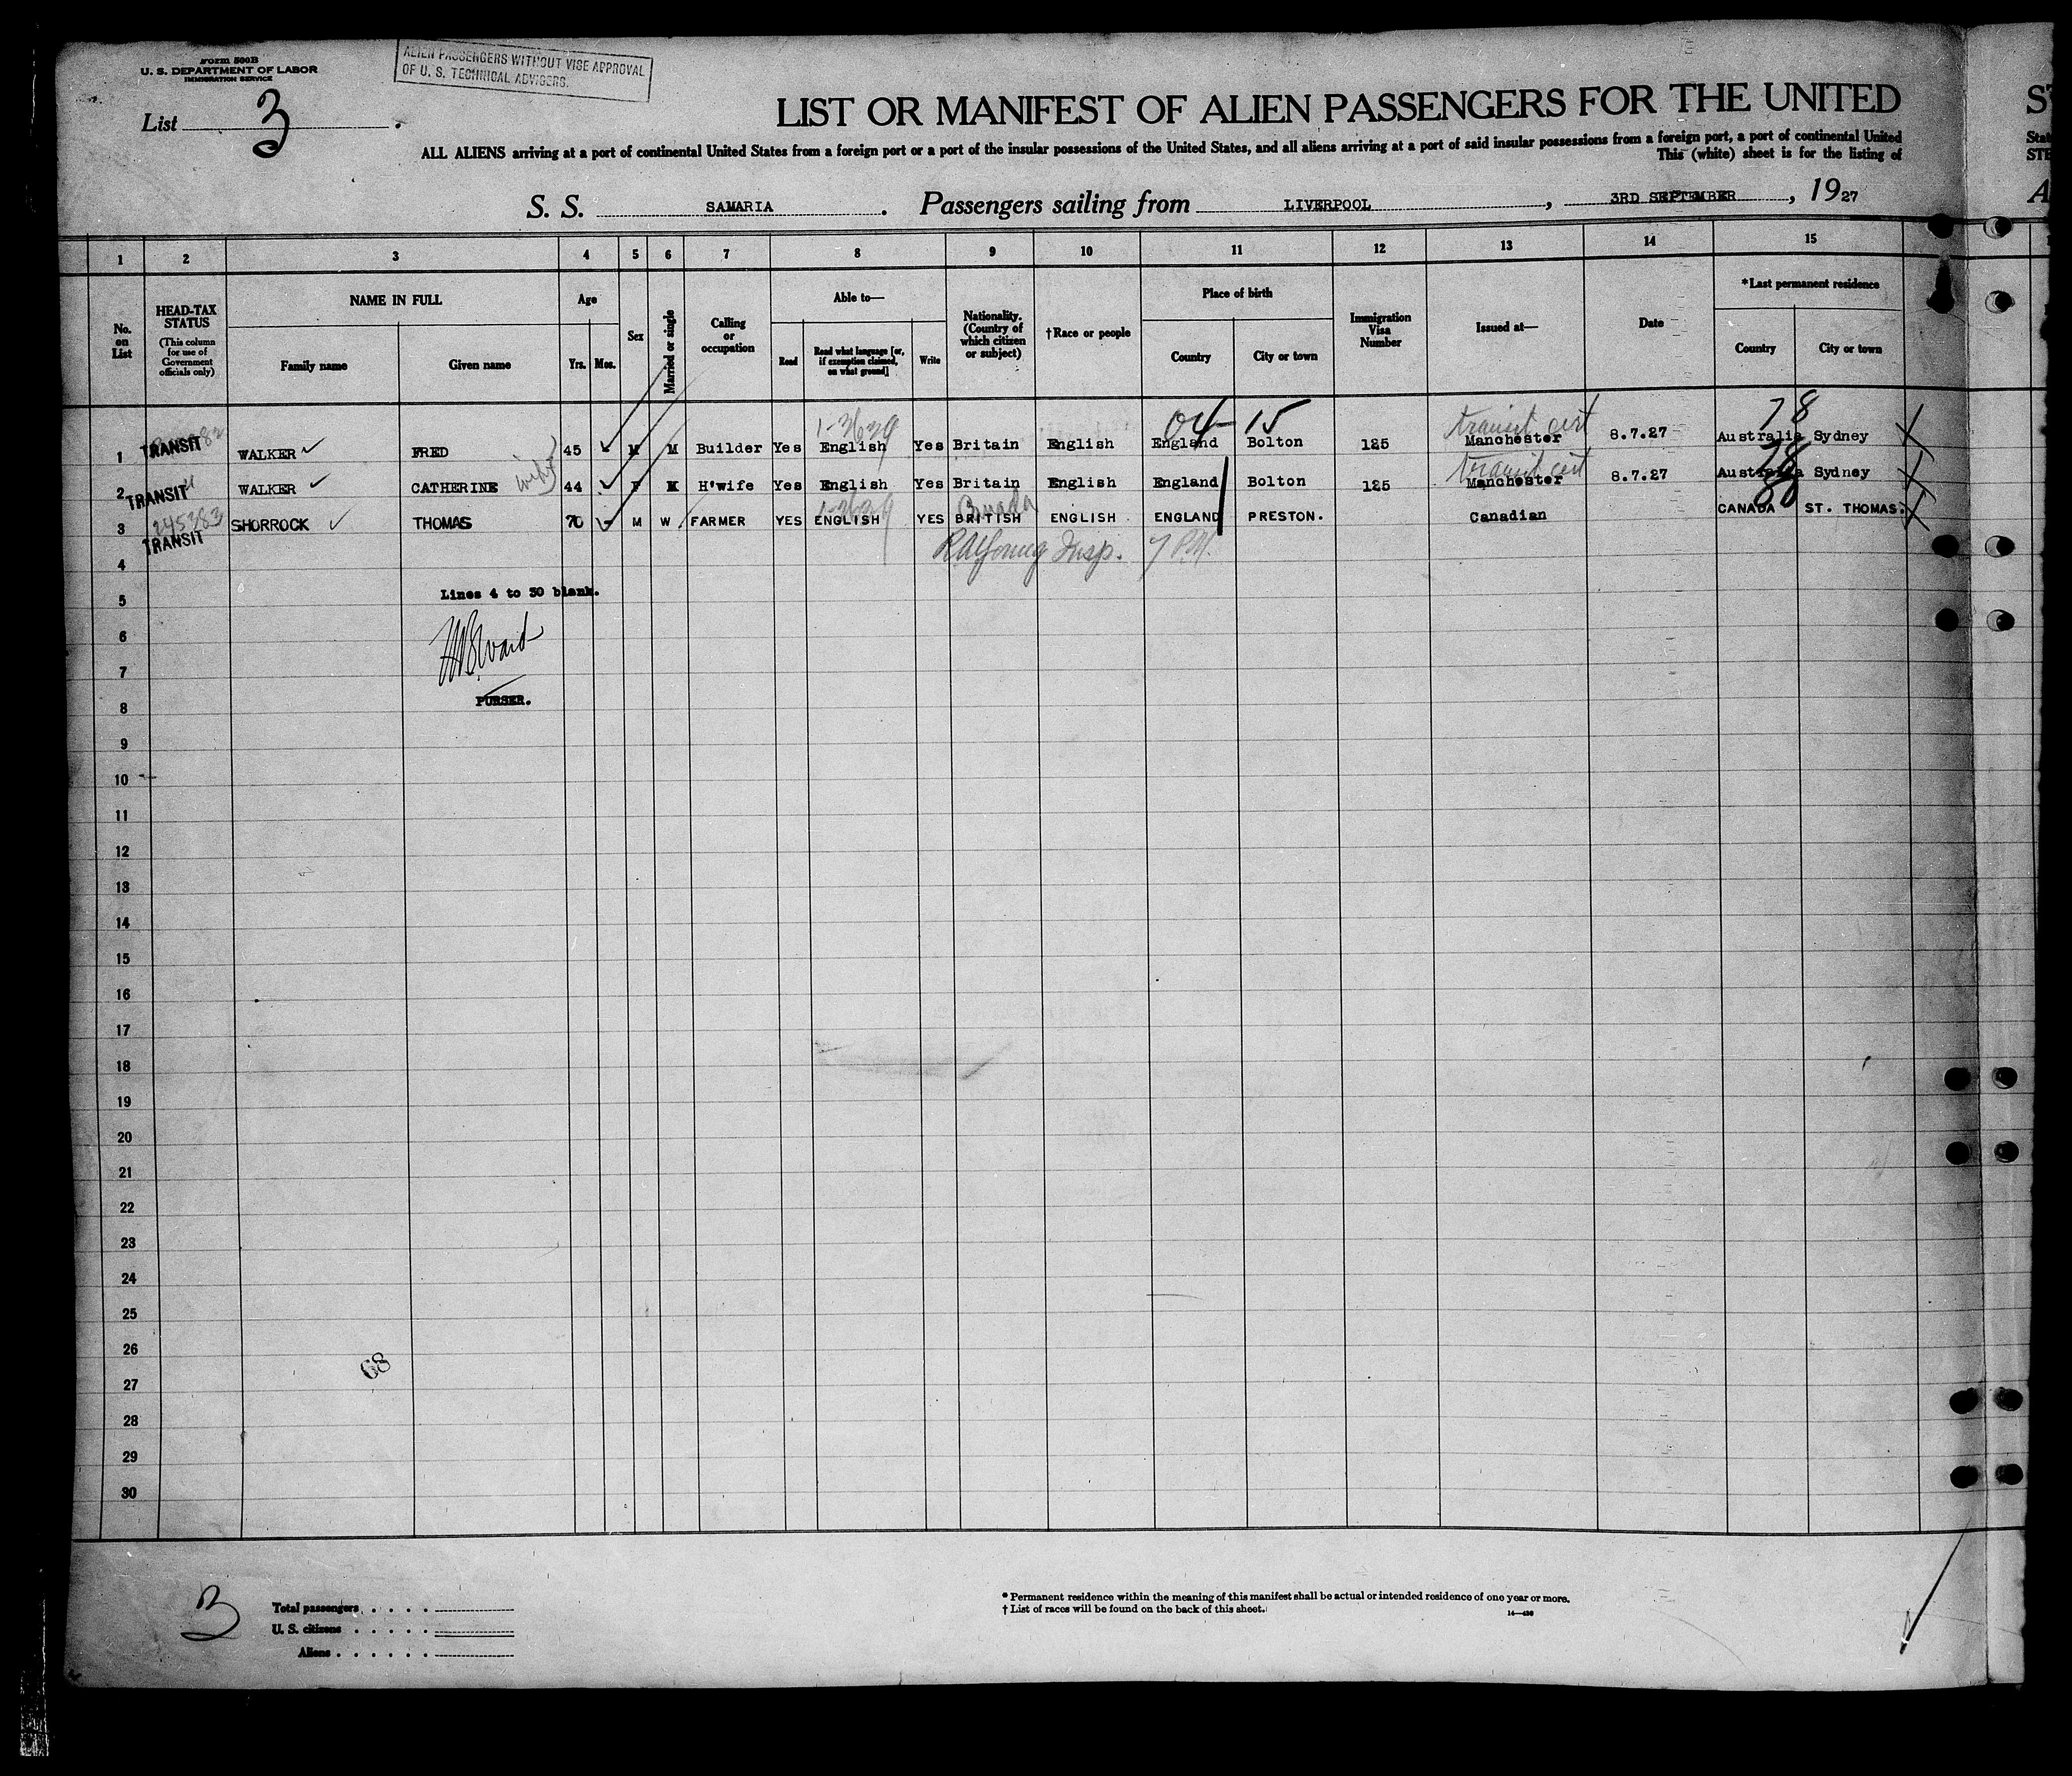 Form 500B
U. S. DEPARTMENT OF LABOR
IMMIGRATION SERVICE
ALIEN PASSENGERS WITHOUT VISE APPROVAL
OF U. S. TECHNICAL ADVISERS.
List 3.
LIST OR MANIFEST OF ALIEN PASSENGERS FOR THE UNITED
ALL ALIENS arriving at a port of continental United States from a foreign port or a port of the insular possessions of the United States, and all aliens arriving at a port of said insular possessions from a foreign port, a port of continental United
This (white) sheet is for the listing of
S. S. SAMARIA. Passengers sailing from LIVERPOOL, 3RD SEPTEMBER, 1927
1 2 3 4 5 6 7 8 9 10 11 12 13 14 15
No. on List
HEAD-TAX STATUS (This column for use of Government officials only)
NAME IN FULL
Family name
Given name
Age
Yrs. Mos.
Sex
Married or single
Calling or occupation
Able to—
Read
Read what language [or, if exemption claimed, on what ground]
Write
Nationality. (Country of which citizen or subject)
†Race or people
Place of birth
Country
City or town
Immigration Visa Number
Issued at—
Date
*Last permanent residence
Country
City or town
04-15 transit cert 78
1 TRANSIT WALKER FRED 45 M M Builder Yes English Yes Britain English England Bolton 125 Manchester 8.7.27 Australia Sydney
wife transit cert 78
2 TRANSIT WALKER CATHERINE 44 F M H'wife Yes English Yes Britain English England Bolton 125 Manchester 8.7.27 Australia Sydney
245383 80
3 TRANSIT SHORROCK THOMAS 70 M W FARMER YES ENGLISH YES BRITISH ENGLISH ENGLAND PRESTON. Canadian CANADA ST. THOMAS.
Insp. 7 PM.
4
Lines 4 to 30 blank.
5
6
7
PURSER.
8
9
10
11
12
13
14
15
16
17
18
19
20
21
22
23
24
25
26
68
27
28
29
30
3
Total passengers
U. S. citizens
Aliens
* Permanent residence within the meaning of this manifest shall be actual or intended residence of one year or more.
† List of races will be found on the back of this sheet.
14—430